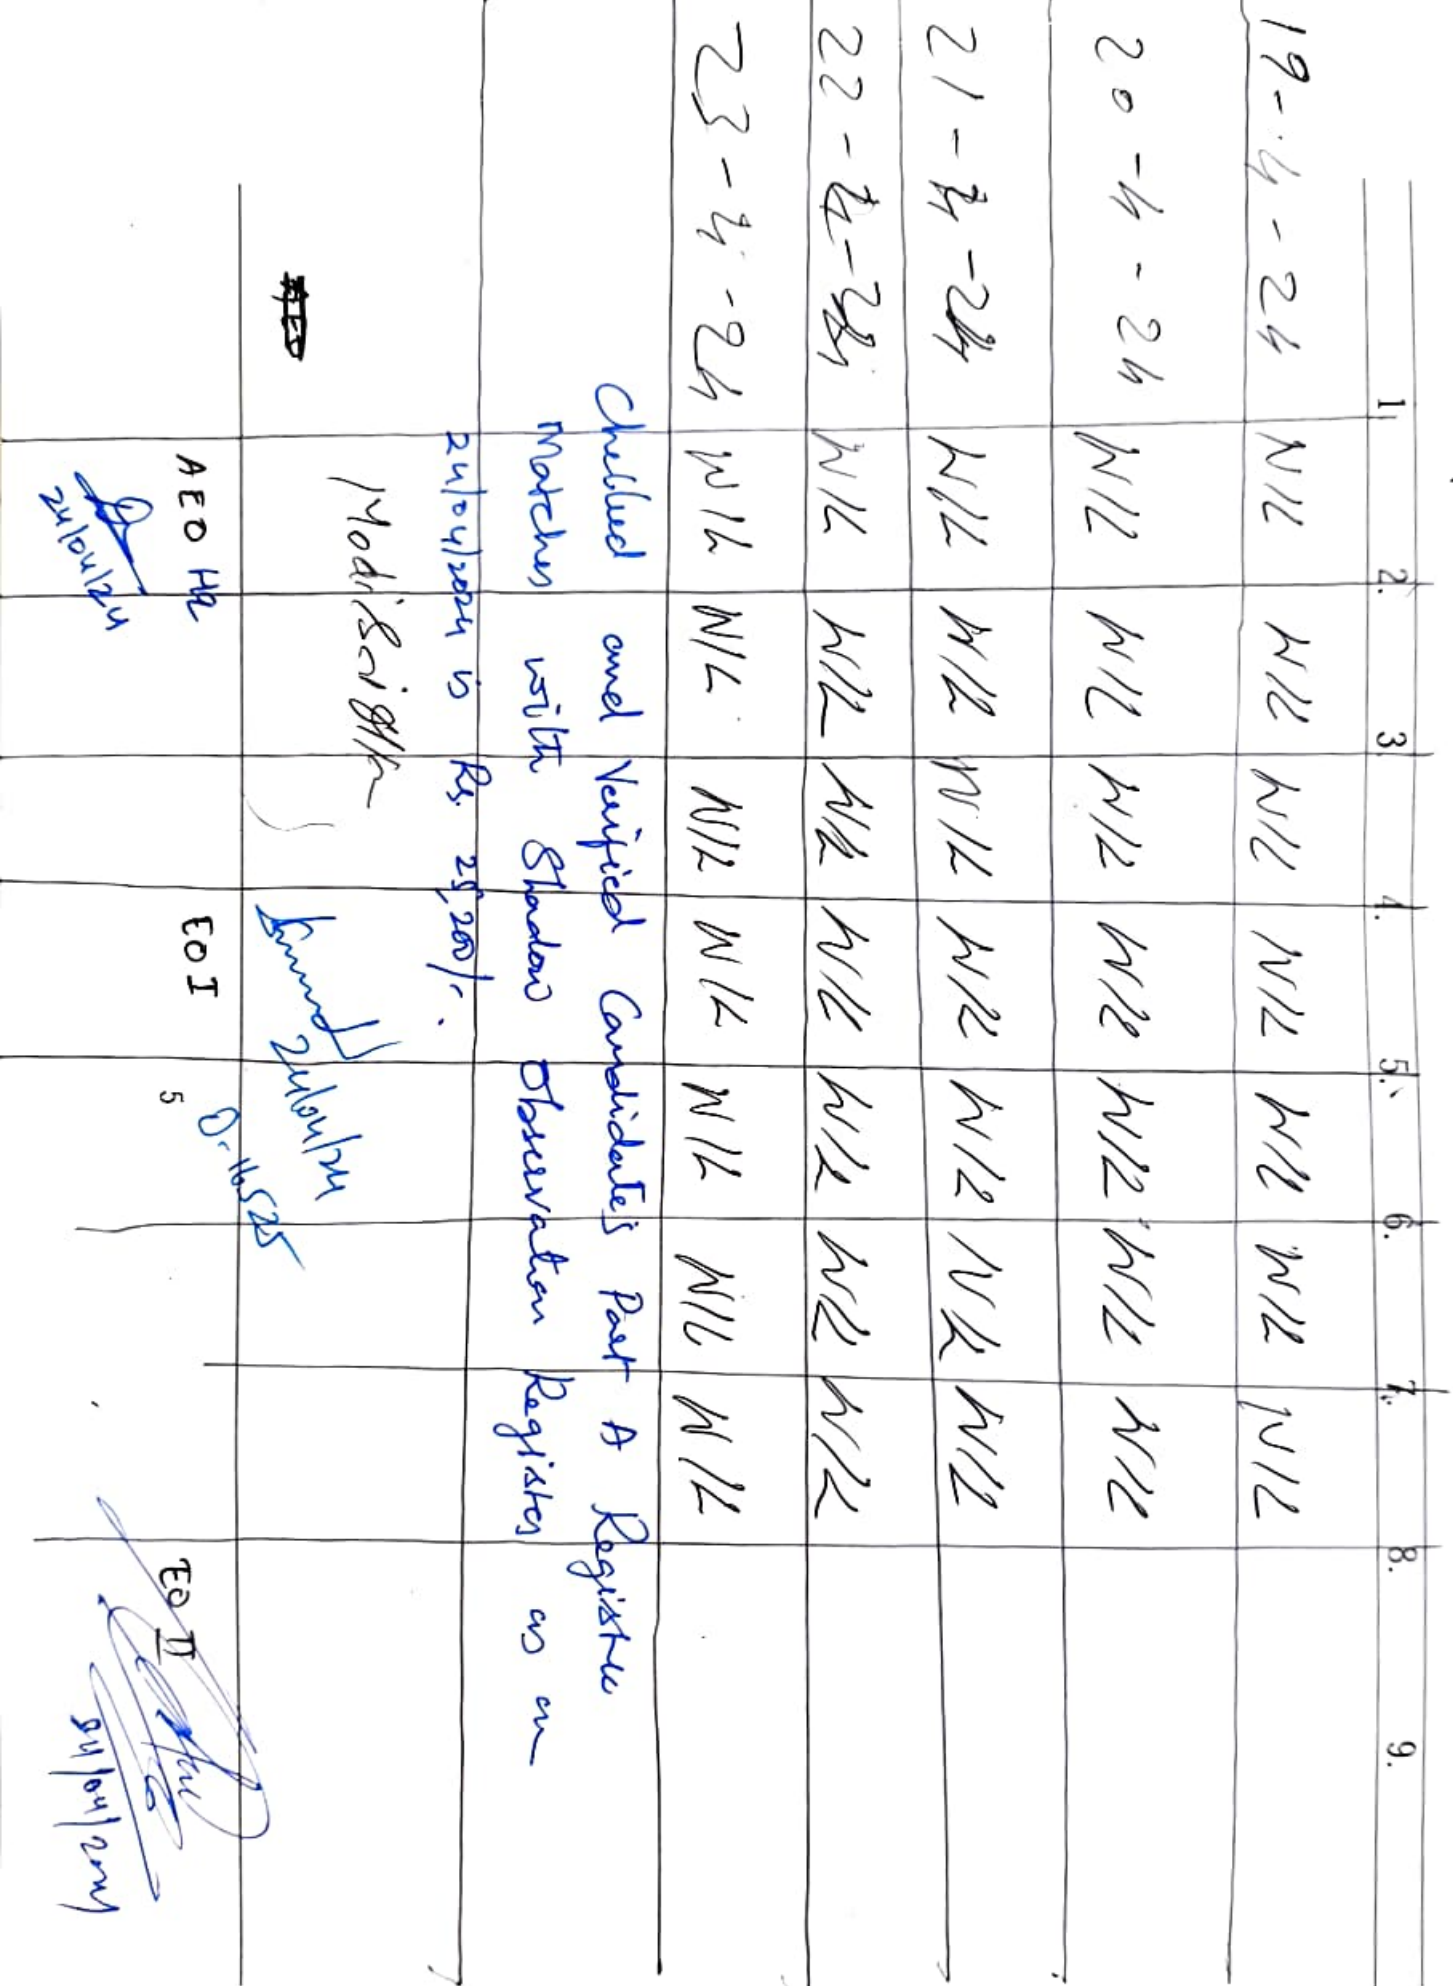 1 2. 3 4. 5. 6. 7. 8. 9.
19-4-24 NIL NIL NIL NIL NIL NIL NIL
20-4-24 NIL NIL NIL NIL NIL NIL NIL
21-4-24 NIL NIL NIL NIL NIL NIL NIL
22-4-24 NIL NIL NIL NIL NIL NIL NIL
23-4-24 NIL NIL NIL NIL NIL NIL NIL
Checked and Verified Candidate's Part A Register
Matches with Shadow Observation Register as on
24/04/2024 is Rs. 25,200/-.
24/04/24
AEO HQ EOI 5 EO II
24/04/24 24/04/2024